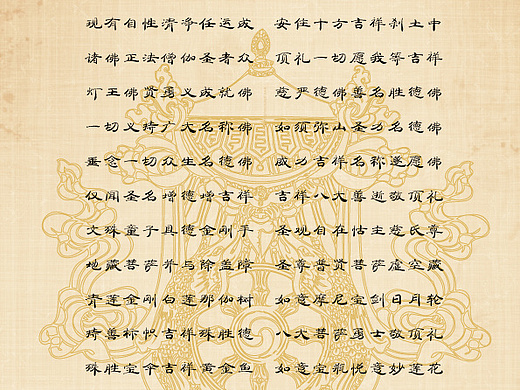 现有自性清净任运成 安住十方吉祥刹土中
诸佛正法僧伽圣者众 顶礼一切愿我等吉祥
灯王佛贤勇义成就佛 慈严德佛善名胜德佛
一切义持广大名称佛 如须弥山圣功名德佛
垂念一切众生名德佛 威力吉祥名称遂愿佛
仅闻圣名增德增吉祥 吉祥八大善逝敬顶礼
文殊童子具德金刚手 圣观自在怙主慈氏尊
地藏菩萨并与除盖障 圣尊普贤菩萨虚空藏
青莲金刚白莲那伽树 如意摩尼宝剑日月轮
琦兽标帜吉祥殊胜德 八大菩萨勇士敬顶礼
殊胜宝伞吉祥黄金鱼 如意宝瓶悦意妙莲花